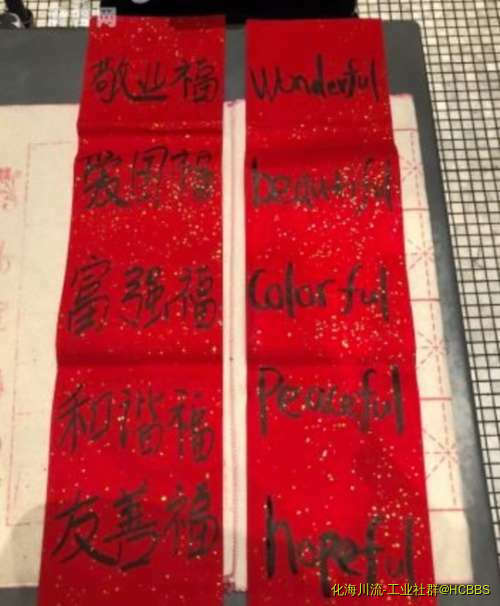 敬业福
爱国福
富强福
和谐福
友善福
Wonderful
beautiful
Colorful
Peaceful
hopeful
化海川流-工业社群@HCBBS